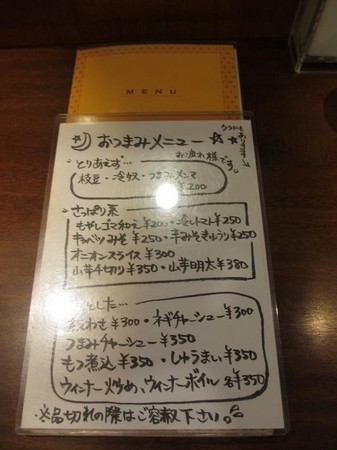 MENU
おつまみメニュー
お疲れ様です。
とりあえず…
枝豆・冷奴・つまみメンマ
¥200
さっぱり系
もやしゴマ和え¥200・冷トマト¥250
キャベツみそ¥250・辛みそきゅうり¥250
オニオンスライス¥300
山芋千切り¥350・山芋明太¥380
とした…
¥300・ネギチャーシュー¥300
つまみチャーシュー¥350
もつ煮込¥350・しゅうまい¥350
ウィンナー炒め、ウィンナーボイル 各¥350
※品切れの際はご容赦下さい。